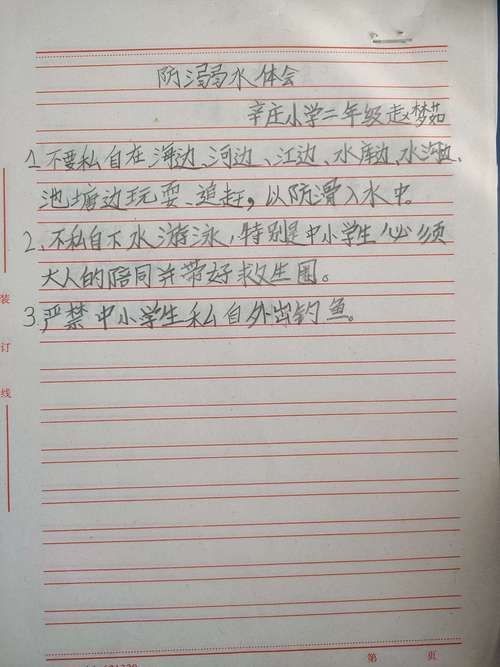 防溺水体会
辛庄小学二年级赵梦茹
1.不要私自在海边、河边、江边、水库边、水沟边、
池塘边玩耍、追赶，以防滑入水中。
2、不私自下水游泳，特别是中小学生必须
大人的陪同并带好救生圈。
3.严禁中小学生私自外出钓鱼。
装
订
线
第 页